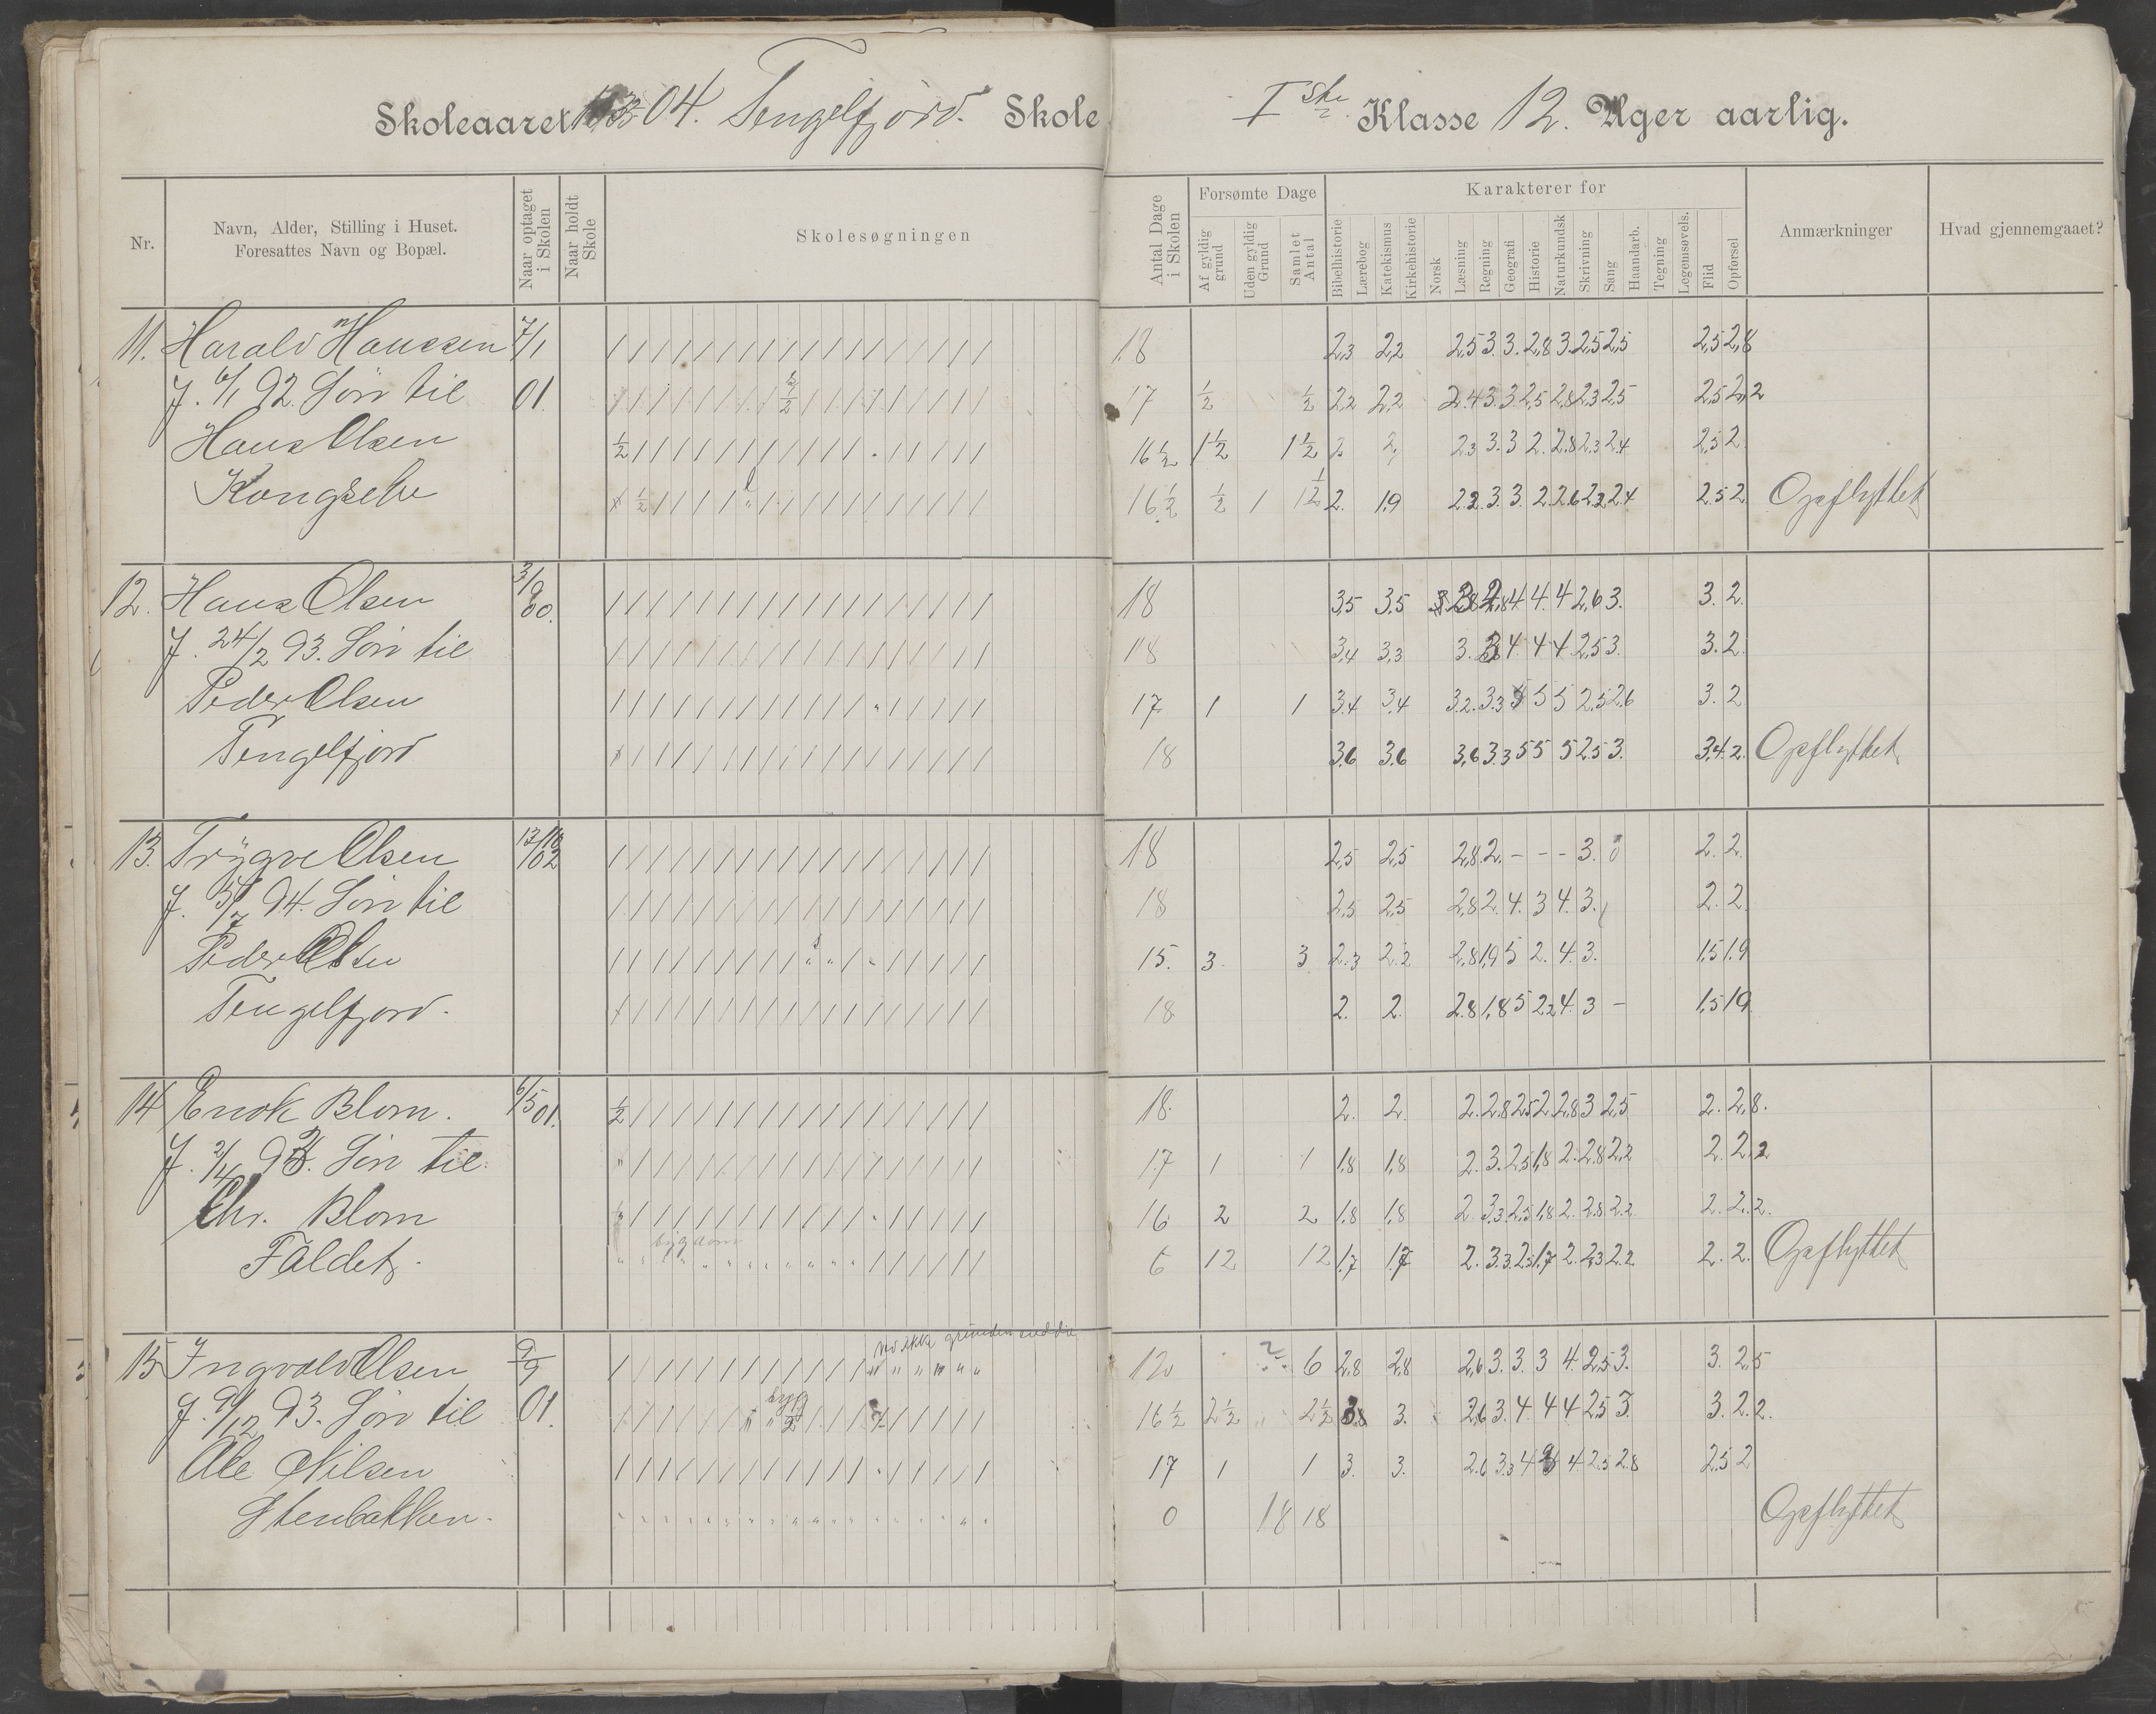 Skoleaaret 04. Tengelfjord. Skole
Iste Klasse 12. Uger aarlig.
Nr. Navn, Alder, Stilling i Huset. Foresattes Navn og Bopæl. Naar optaget i Skolen Naar holdt Skole Skolesøgningen
Antal Dage i Skolen Forsømte Dage Af gyldig grund Uden gyldig Grund Samlet Antal Karakterer for Bibelhistorie Lærebog Katekismus Kirkehistorie Norsk Læsning Regning Geografi Historie Naturkundsk Skrivning Sang Haandarb. Tegning Legemsøvels. Flid Opførsel Anmærkninger Hvad gjennemgaaet?
11. Harald Hanssen 7/1 18 2,3 2,2 2,5 3. 3. 2,8 3. 2,5 2,5 2,5 2,8
f. 6/1 92. Søn til 01. 17 1/2 1/2 2,2 2,2 2.4 3. 3. 2,5 2,8 2,3 2,5 2,5 2,2
Hans Olsen 16 1/2 1 1/2 1 1/2 2. 2, 2.3 3. 3 2. 2.8 2.3 2.4 2,5 2.
Kongselv 16 1/2 1/2 1 1 1/2 2. 1,9 2.2. 3. 3. 2. 2.6 2.2 2.4 2.5 2. Opflyttet
12. Hans Olsen 3/9 00. 18 3,5 3,5 4 4. 4 2,6 3. 3. 2.
f. 24/2 93. Søn til 18 3,4 3,3 3. 4 4 4 2,5 3. 3. 2.
Peder Olsen 17 1 1 3.4 3.4 3.2. 3.3 5 5 2.5 2.6 3. 2
Tengelfjord 18 3.6 3.6 3,6 3.3 5 5 5 2.5 3. 3,4. 2. Opflyttet
13. Trygve Olsen 13/10 02 18 2,5 2,5 2,8. 2. - - - 3. 2. 2.
f. 5/7 94. Søn til 18 2,5 2,5 2,8 2. 4. 3 4. 3. 2. 2.
Peder Olsen 15. 3. 3 2.3 2.2 2,8 1,9 5 2. 4. 3. 1,5 1.9
Tengelfjord. 18 2. 2. 2.8 1,8 5 2.2 4. 3 - 1,5 1.9
14 Enok Blom. 6/5 01. 18. 2. 2. 2. 2,8 2,5 2 2,8 3 2,5 2. 2,8.
f. 2/4 Søn til 17 1 1 1,8 1,8 2. 3. 2,5 1,8 2. 2.8 2,2 2. 2.2
Chr. Blom 16 2 2 1,8 1,8 2. 3,3 2,5 1,8 2. 2.8 2.2 2. 2.2.
Faldet. 6 12 12 1.7 1.7 2. 3.3 2.5 1.7 2. 2.3 2.2 2. 2. Opflyttet
15 Ingvald Olsen 9/9 12 ? 6 2,8 2,8 2,6 3. 3. 3 4. 2,5 3. 3. 2,5
f. 9/12 93. Søn til 01. 16 1/2 2 1/2 2 1/2 3. 2,6 3. 4. 4 4 2.5 3. 3. 2.2.
Ole Nilsen 17 1 1 3. 3. 2.6 3.3 4 4 2.5 2.8 2.5 2
Stenbakken. 0 18 18 Opflyttet